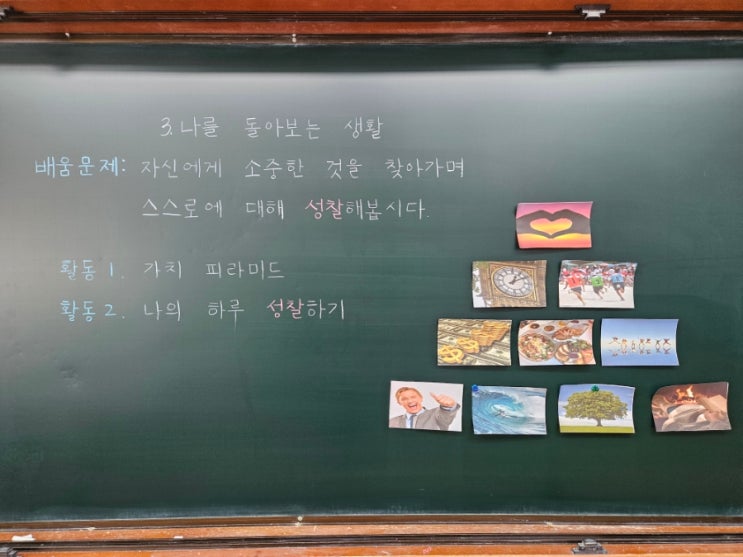 3. 나를 돌아보는 생활
배움문제: 자신에게 소중한 것을 찾아가며
스스로에 대해 성찰해봅시다.
활동 1. 가치 피라미드
활동 2. 나의 하루 성찰하기